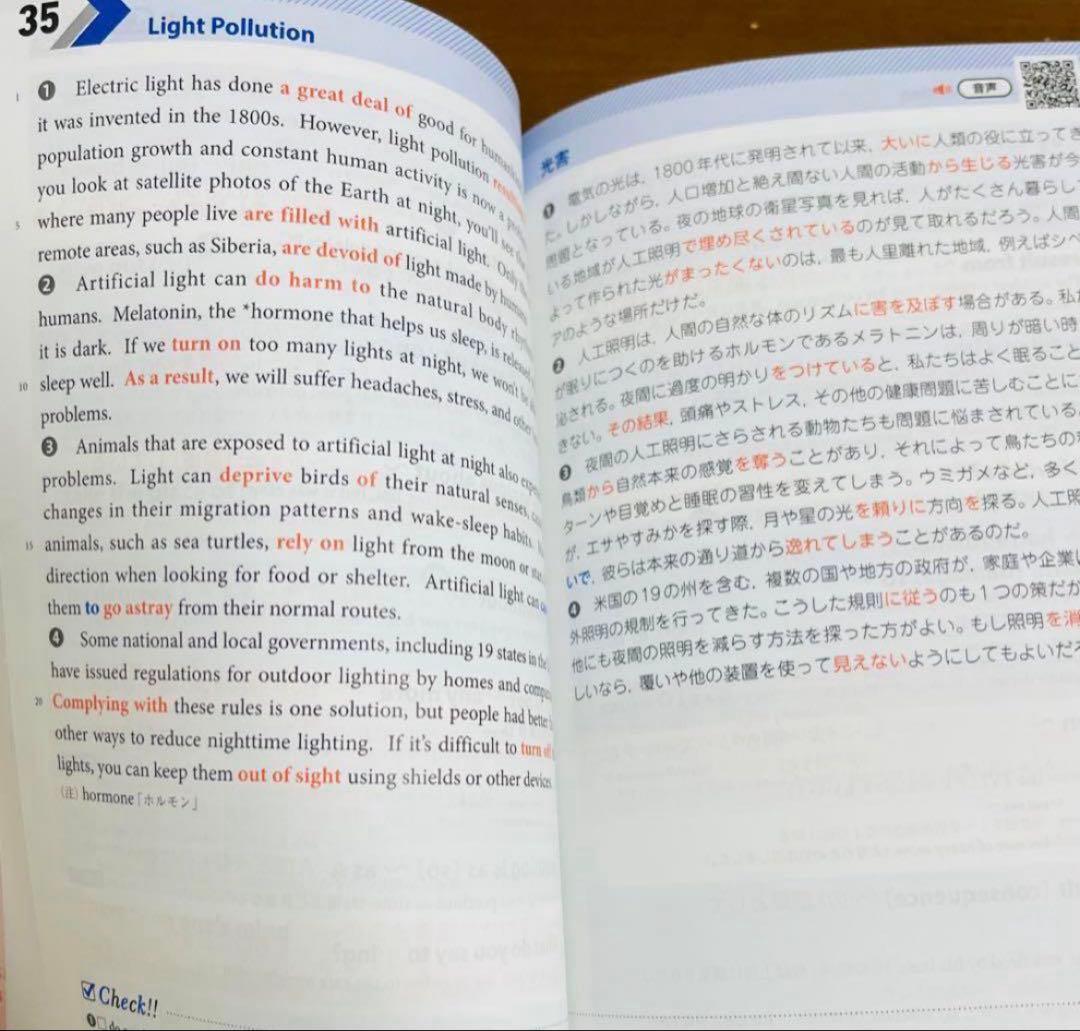 35
Light Pollution
1 ❶ Electric light has done a great deal of good for
it was invented in the 1800s. However, light pollution
population growth and constant human activity is now a
you look at satellite photos of the Earth at night, you'll see
5 where many people live are filled with artificial light. Only
remote areas, such as Siberia, are devoid of light made by
❷ Artificial light can do harm to the natural body
humans. Melatonin, the *hormone that helps us sleep, is
it is dark. If we turn on too many lights at night, we won't
10 sleep well. As a result, we will suffer headaches, stress, and other
problems.
❸ Animals that are exposed to artificial light at night also
problems. Light can deprive birds of their natural senses,
changes in their migration patterns and wake-sleep habits.
15 animals, such as sea turtles, rely on light from the moon or
direction when looking for food or shelter. Artificial light can
them to go astray from their normal routes.
❹ Some national and local governments, including 19 states in
have issued regulations for outdoor lighting by homes and
20 Complying with these rules is one solution, but people had better
other ways to reduce nighttime lighting. If it's difficult to turn
lights, you can keep them out of sight using shields or other devices
(注) hormone「ホルモン」
Check!!
音声
光害
❶ 電気の光は，1800年代に発明されて以来，大いに人類の役に立って
た。しかしながら，人口増加と絶え間ない人間の活動から生じる光害が今
問題となっている。夜の地球の衛星写真を見れば，人がたくさん暮らし
いる地域が人工照明で埋め尽くされているのが見て取れるだろう。人間
よって作られた光がまったくないのは，最も人里離れた地域，例えばシベ
アのような場所だけだ。
❷ 人工照明は，人間の自然な体のリズムに害を及ぼす場合がある。私た
が眠りにつくのを助けるホルモンであるメラトニンは，周りが暗い時
泌される。夜間に過度の明かりをつけていると，私たちはよく眠ること
きない。その結果，頭痛やストレス，その他の健康問題に苦しむことに
❸ 夜間の人工照明にさらされる動物たちも問題に悩まされている。
鳥類から自然本来の感覚を奪うことがあり，それによって鳥たちの
ターンや目覚めと睡眠の習性を変えてしまう。ウミガメなど，多く
が，エサやすみかを探す際，月や星の光を頼りに方向を探る。人工照
いで，彼らは本来の通り道から逸れてしまうことがあるのだ。
❹ 米国の19の州を含む，複数の国や地方の政府が，家庭や企業
外照明の規制を行ってきた。こうした規則に従うのも1つの策だが
他にも夜間の照明を減らす方法を探った方がよい。もし照明を消
しいなら，覆いや他の装置を使って見えないようにしてもよいだろ